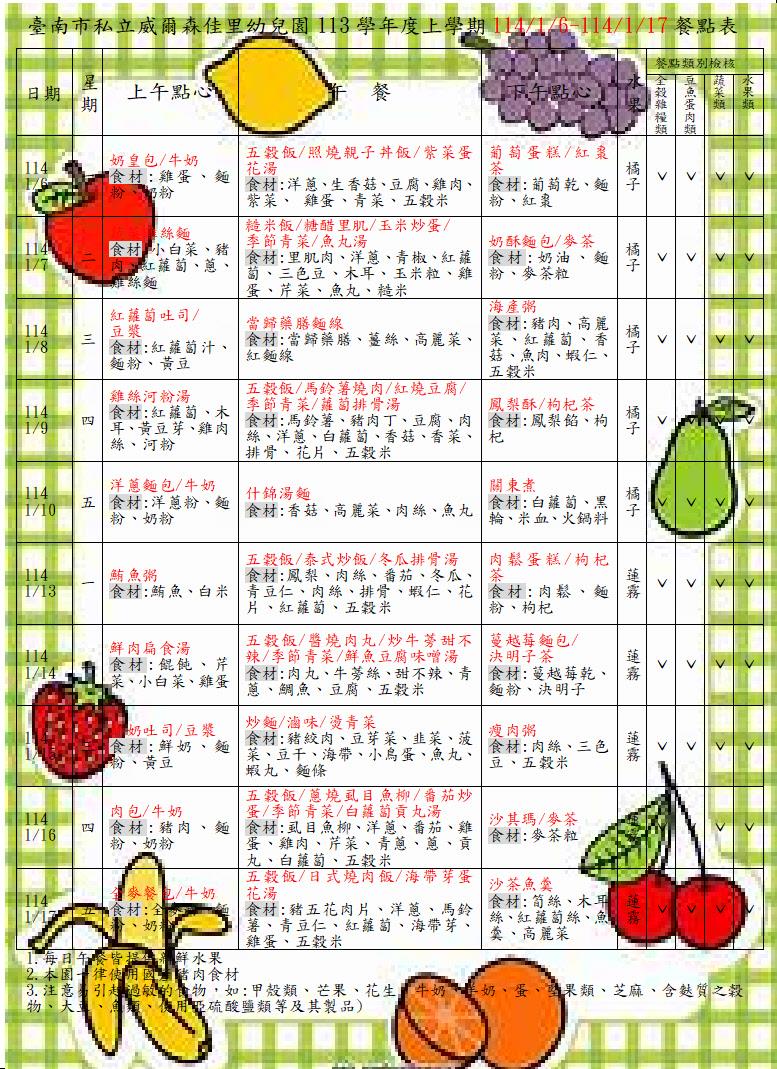 臺南市私立威爾森佳里幼兒園 113 學年度上學期 114/1/6-114/1/17 餐點表
日期
星期
上午點心
午 餐
下午點心
水果
餐點類別檢核
全穀雜糧類
豆魚蛋肉類
蔬菜類
水果類
114
1/6
奶皇包/牛奶
食材:雞蛋、麵
粉、奶粉
五穀飯/照燒親子丼飯/紫菜蛋
花湯
食材:洋蔥、生香菇、豆腐、雞肉、
紫菜、 雞蛋、青菜、五穀米
葡萄蛋糕/紅棗
茶
食材:葡萄乾、麵
粉、紅棗
橘子
v v v v
114
1/7
二
絲麵
食材:小白菜、豬
肉、紅蘿蔔、蔥、
雞絲麵
糙米飯/糖醋里肌/玉米炒蛋/
季節青菜/魚丸湯
食材:里肌肉、洋蔥、青椒、紅蘿
蔔、三色豆、木耳、玉米粒、雞
蛋、芹菜、魚丸、糙米
奶酥麵包/麥茶
食材:奶油、麵
粉、麥茶粒
橘子
v v v v
114
1/8
三
紅蘿蔔吐司/
豆漿
食材:紅蘿蔔汁、
麵粉、黃豆
當歸藥膳麵線
食材:當歸藥膳、薑絲、高麗菜、
紅麵線
海產粥
食材:豬肉、高麗
菜、紅蘿蔔、香
菇、魚肉、蝦仁、
五穀米
橘子
v v v v
114
1/9
四
雞絲河粉湯
食材:紅蘿蔔、木
耳、黃豆芽、雞肉
絲、河粉
五穀飯/馬鈴薯燒肉/紅燒豆腐/
季節青菜/蘿蔔排骨湯
食材:馬鈴薯、豬肉丁、豆腐、肉
絲、洋蔥、白蘿蔔、香菇、香菜、
排骨、花片、五穀米
鳳梨酥/枸杞茶
食材:鳳梨餡、枸
杞
橘子
v v v v
114
1/10
五
洋蔥麵包/牛奶
食材:洋蔥粉、麵
粉、奶粉
什錦湯麵
食材:香菇、高麗菜、肉絲、魚丸
關東煮
食材:白蘿蔔、黑
輪、米血、火鍋料
橘子
v v v v
114
1/13
一
鮪魚粥
食材:鮪魚、白米
五穀飯/泰式炒飯/冬瓜排骨湯
食材:鳳梨、肉絲、番茄、冬瓜、
青豆仁、肉絲、排骨、蝦仁、花
片、紅蘿蔔、五穀米
肉鬆蛋糕/枸杞
茶
食材:肉鬆、麵
粉、枸杞
蓮霧
v v v v
114
1/14
鮮肉扁食湯
食材:餛飩、芹
菜、小白菜、雞蛋
五穀飯/醬燒肉丸/炒牛蒡甜不
辣/季節青菜/鮮魚豆腐味噌湯
食材:肉丸、牛蒡絲、甜不辣、青
蔥、鯛魚、豆腐、五穀米
蔓越莓麵包/
決明子茶
食材:蔓越莓乾、
麵粉、決明子
蓮霧
v v v v
奶吐司/豆漿
食材:鮮奶、麵
粉、黃豆
炒麵/滷味/燙青菜
食材:豬絞肉、豆芽菜、韭菜、菠
菜、豆干、海帶、小鳥蛋、魚丸、
蝦丸、麵條
瘦肉粥
食材:肉絲、三色
豆、五穀米
蓮霧
v v v v
114
1/16
四
肉包/牛奶
食材:豬肉、麵
粉、奶粉
五穀飯/蔥燒虱目魚柳/番茄炒
蛋/季節青菜/白蘿蔔貢丸湯
食材:虱目魚柳、洋蔥、番茄、雞
蛋、雞肉、芹菜、青蔥、蔥、貢
丸、白蘿蔔、五穀米
沙其瑪/麥茶
食材:麥茶粒
v v
114
1/17
五
全麥餐包/牛奶
食材:全麥 麵
粉、奶粉
五穀飯/日式燒肉飯/海帶芽蛋
花湯
食材:豬五花肉片、洋蔥、馬鈴
薯、青豆仁、紅蘿蔔、海帶芽、
雞蛋、五穀米
沙茶魚羹
食材:筍絲、木耳
絲、紅蘿蔔絲、魚
羹、高麗菜
蓮霧
v v v v
1.每日午餐皆提供新鮮水果
2.本園一律使用國產豬肉食材
3.注意易引起過敏的食物，如:甲殼類、芒果、花生、牛奶、羊奶、蛋、堅果類、芝麻、含麩質之穀
物、大豆、魚類、使用亞硫酸鹽類等及其製品)